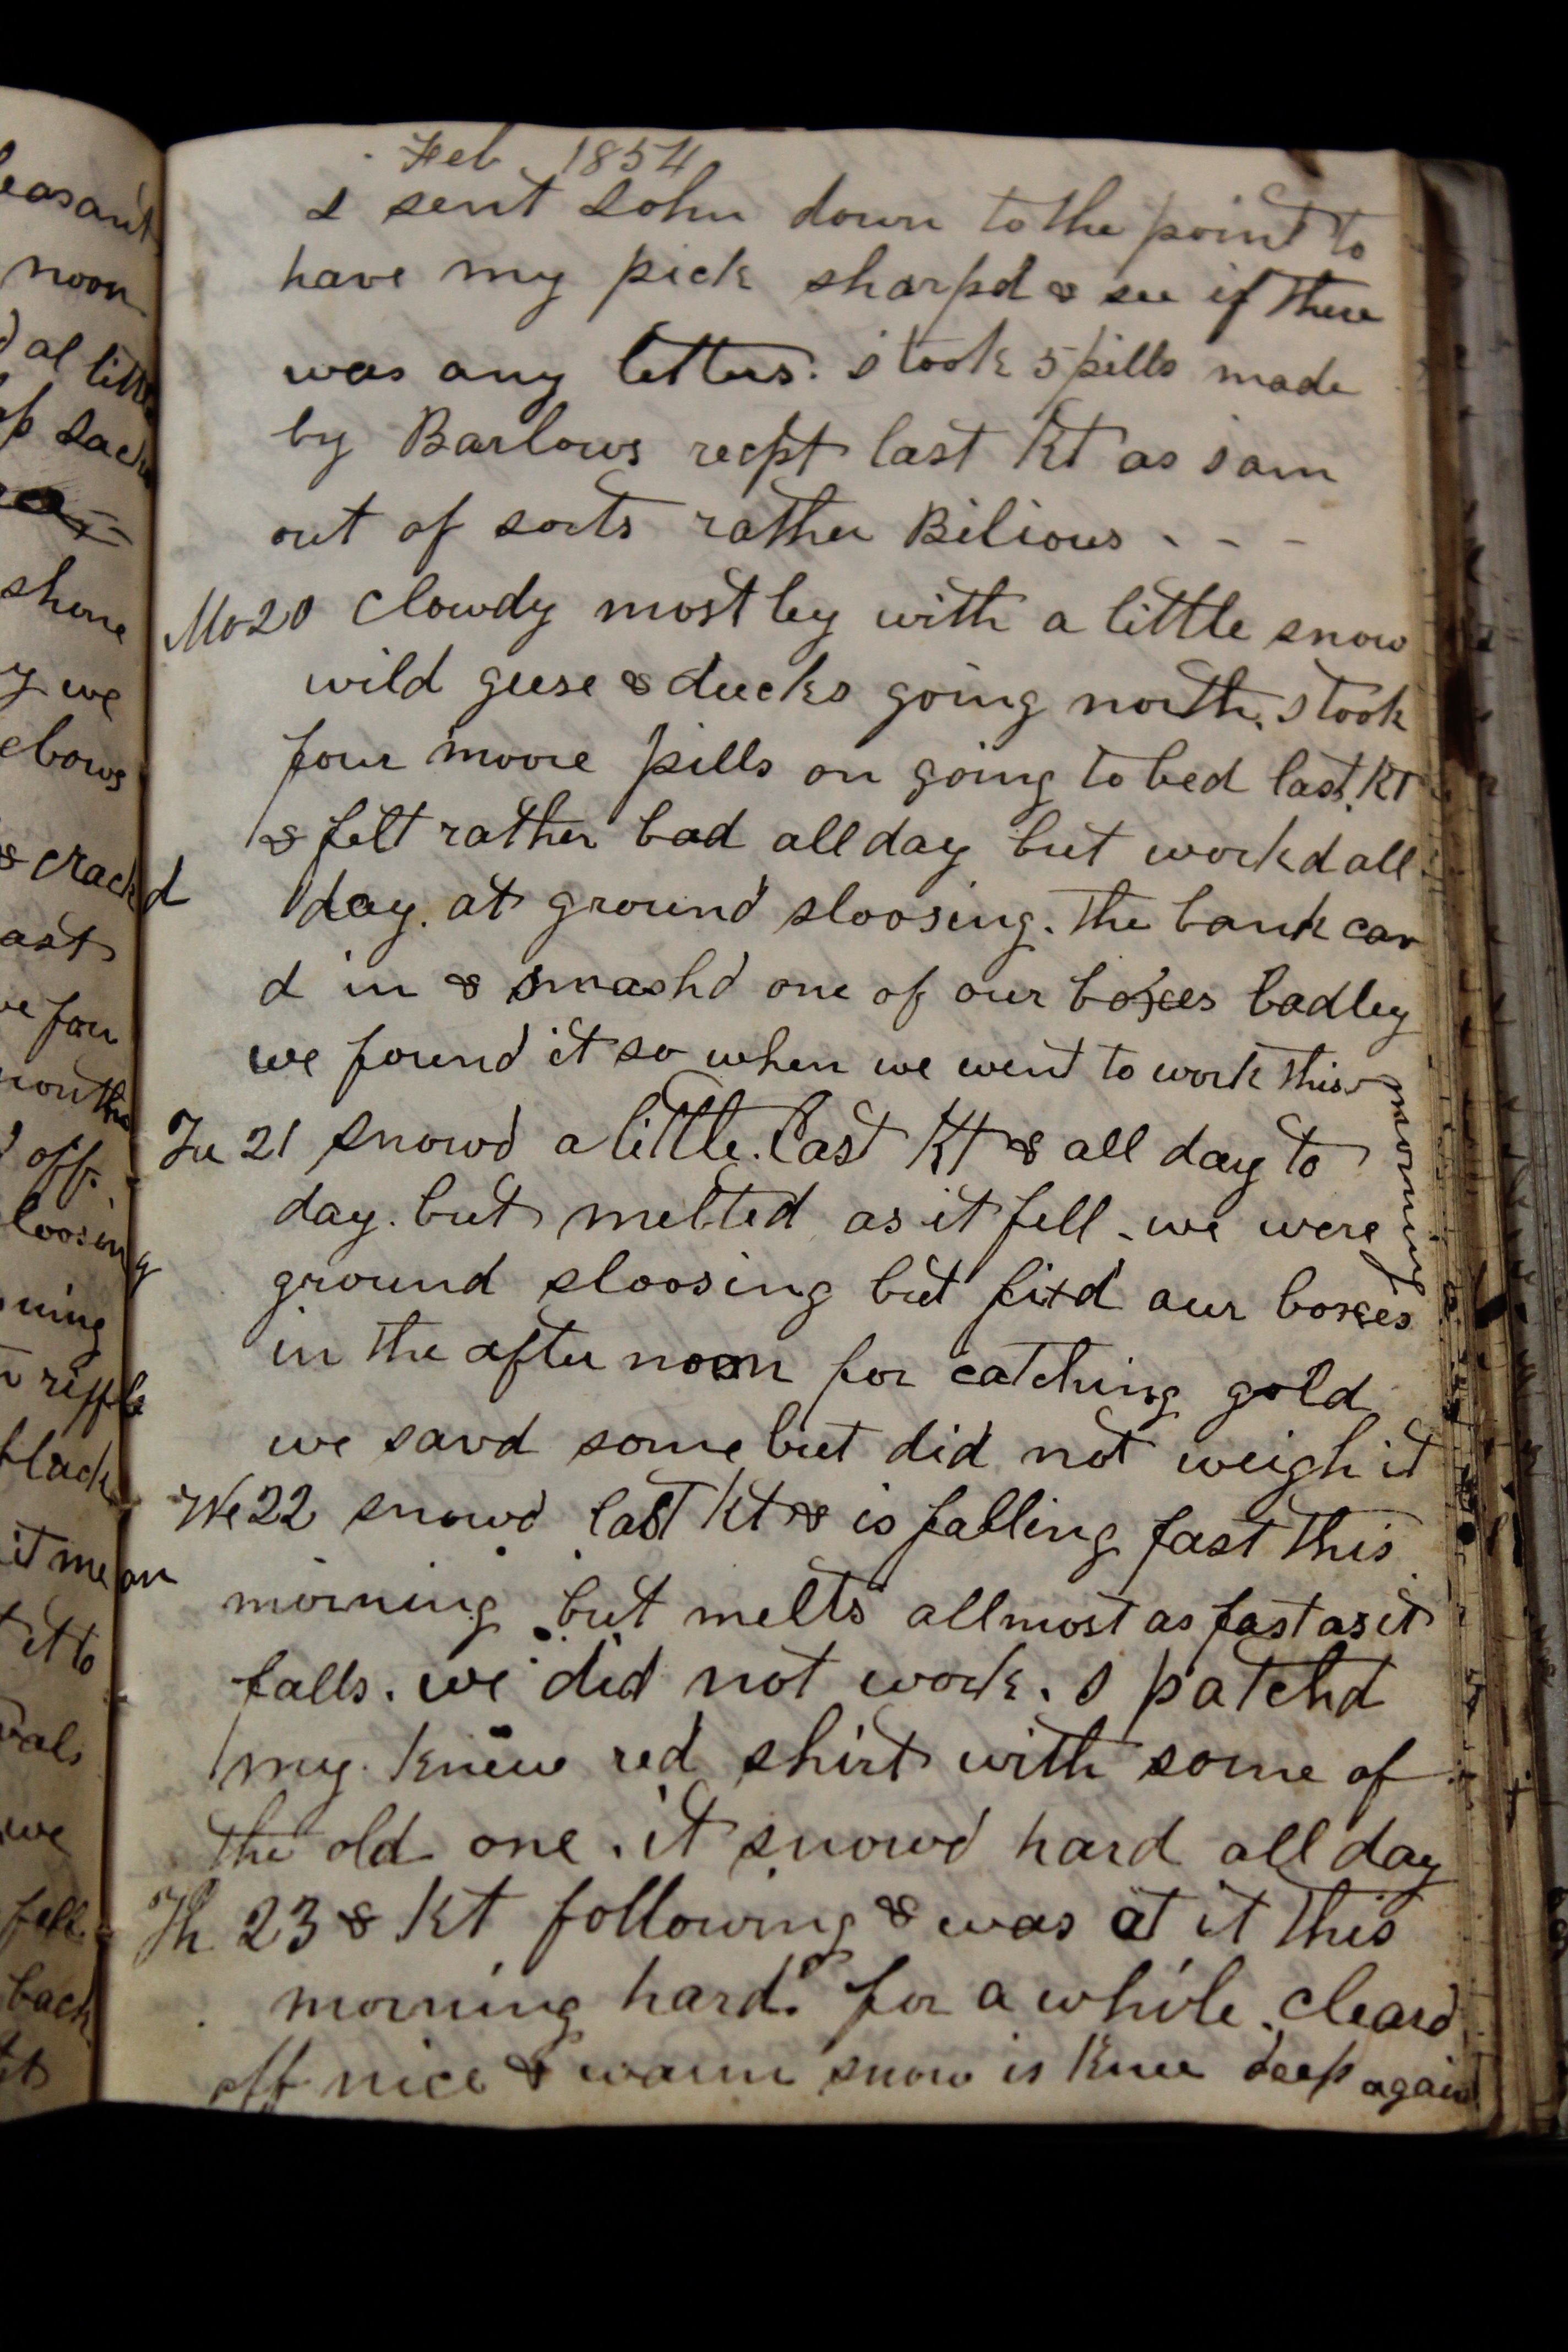 easant
noon
al little
sack
shone
y we
ebows
& crackd
ast
ve four
month
off
loosing
ning
riffle
black
it mean
it to
vals
we
fell
back
its
Feb 1854
I sent John down to the point to
have my pick sharpd & see if there
was any letters. I took 5 pills made
by Barlows recpt last Kt as I am
out of sorts rather Bilious - - -
Mo 20 Clowdy mostley with a little snow
wild geese & ducks going north. I took
four moore pills on going to bed last Kt
& felt rather bad all day but workd all
day. at ground sloosing. the bank cav
d in & smashd one of our boxes badley
we found it so when we went to work this morning
Tu 21 snowd a little last Kt & all day to
day. but melted as it fell - we were
ground sloosing but fixd our boxes
in the after noon for catching gold
we savd some but did not weigh it
We 22 snowd last Kt & is falling fast this
morning but melts allmost as fast as it
falls. we did not work. I patchd
my knew red shirt with some of
the old one. it snowd hard all day
Th 23 & Kt following & was at it this
morning hard. for a while. cleard
off nice & warm snow is knee deep again